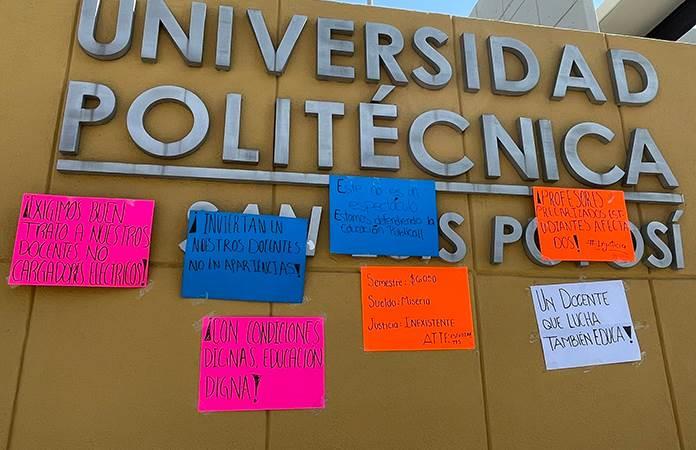 UNIVERSIDAD
POLITÉCNICA
SAN LUIS POTOSÍ
¡EXIGIMOS BUEN
TRATO A NUESTROS
DOCENTES NO
CARGADORES ELÉCTRICOS!
¡INVIERTAN EN
NUESTROS DOCENTES
NO EN APARIENCIAS!
Este no es un
espectáculo
Estamos defendiendo la
educación Política!!
¡PROFESORES
PRECARIZADOS EST-
UDIANTES AFECTA
DOS!
¡CON CONDICIONES
DIGNAS, EDUCACIÓN
DIGNA!
Semestre: $6050
Sueldo: Miseria
Justicia: INEXISTENTE
ATTE
UN DOCENTE
QUE LUCHA
TAMBIÉN EDUCA!